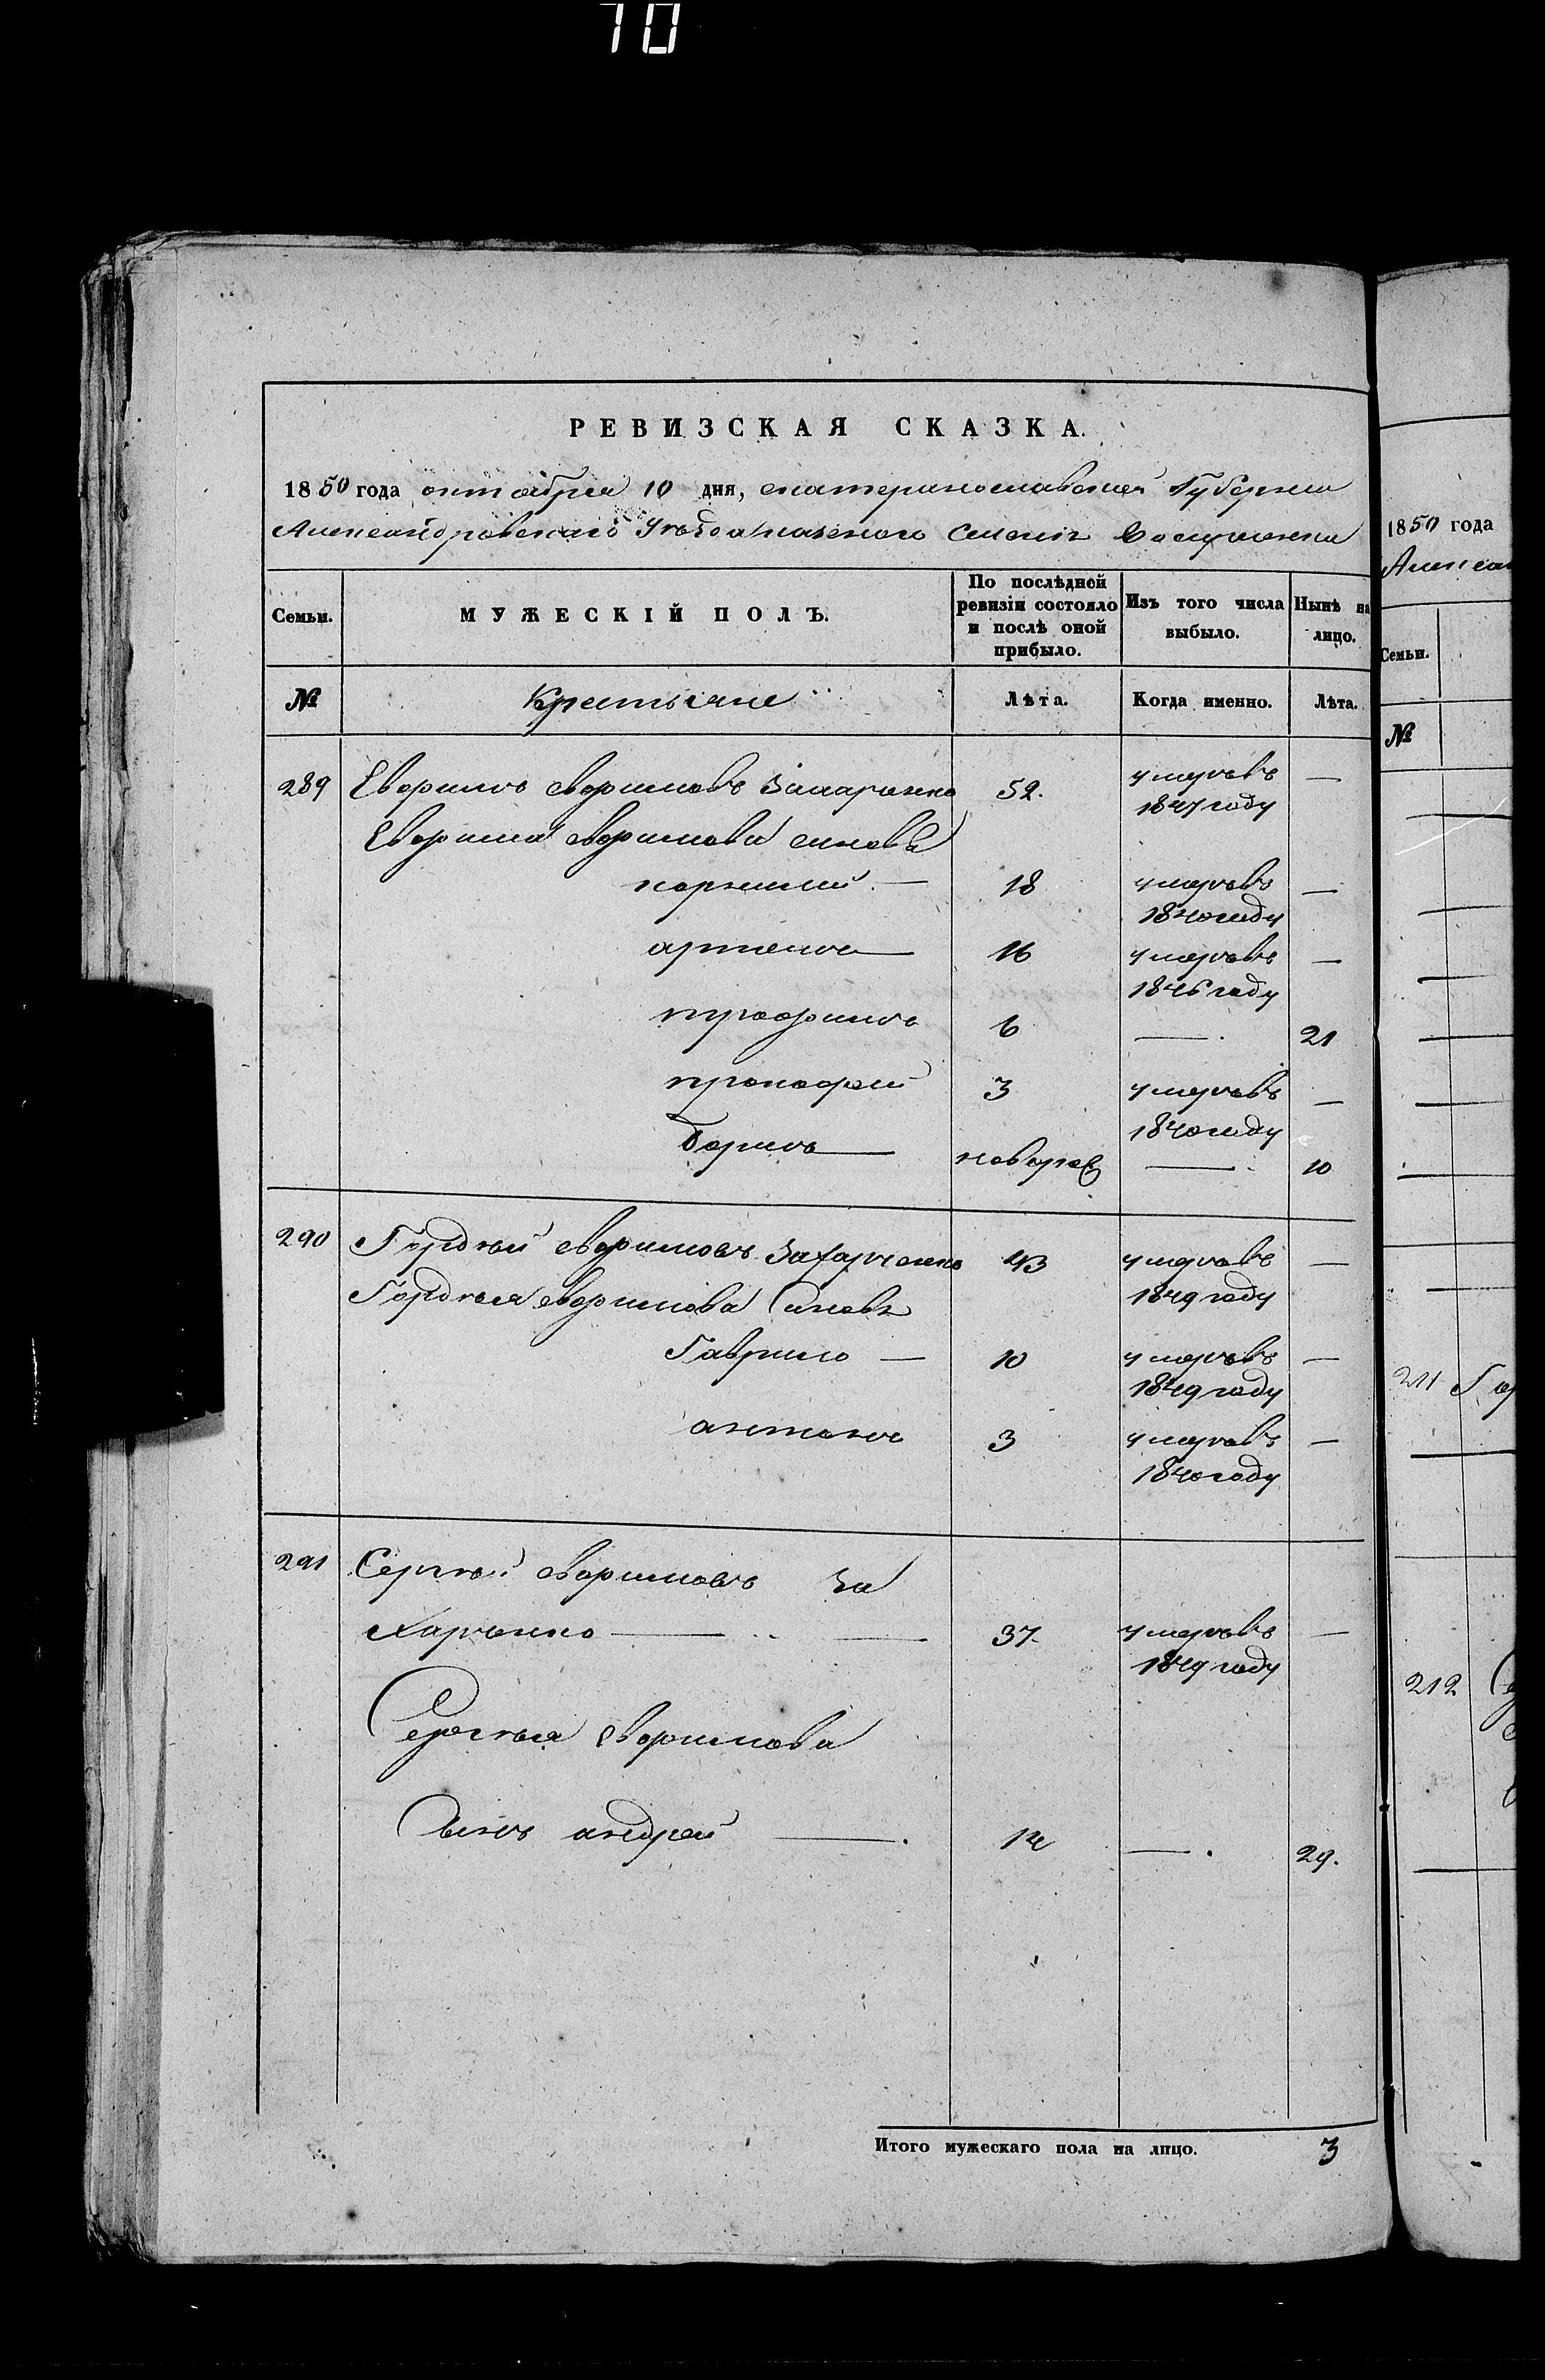 70
РЕВИЗСКАЯ СКАЗКА.
1850 года октября 10 дня, екатеринославской Губернии
Александровскаго Уезда казенного Селенія
Семьи.
МУЖЕСКІЙ ПОЛЪ.
По послѣдней ревизіи состояло и послѣ оной прибыло.
Изъ того числа выбыло.
Нынѣ на лицо.
№
Крестьяне
Лѣта.
Когда именно.
Лѣта.
289 Ефримъ ефримовъ 52. умеръ въ —
1847 году
Ефрима ефримова синовѣ
корнилий — 18 умеръ въ —
1840 году
артемъ — 16 умеръ въ —
1846 году
трофимъ 6 — 21
прокофей 3 умеръ въ —
1840 году
борисъ — новорож — 10
290 Гордѣй ефримовъ Захарченко 43 умеръ въ —
1849 году
Гордѣея ефримова Синовѣ
Гаврило — 10 умеръ въ —
1849 году
антонъ 3 умеръ въ —
1840 году
291 Сергѣй ефримовъ За
харченко — 37. умеръ въ —
1849 году
Сергѣея ефримова
Сынъ андрей — 14 — 29.
Итого мужескаго пола на лицо. 3
1850 года
Алексан
Семьи.
№
211 Гор
212